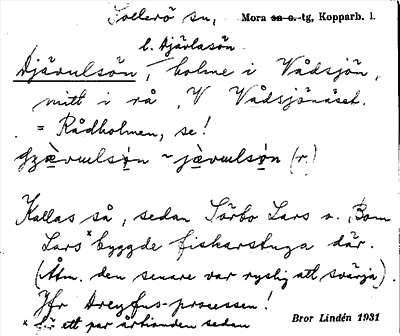 Sollerö sn, Mora sn o. -tg, Kopparb. l.
l. Djävlasön
Djävulsön, holme i Vådsjön,
mitt i rå V Vådsjönäset.
= Rådholmen, se!
(r.)
Kallas så, sedan Sörbo Lars o. Bom
Lars x byggde fiskarstuga där.
(Åtm. den senare var ryslig att svärja).
Jfr Dreyfus-processen!
x för ett par årtionden sedan
Bror Lindén 1931